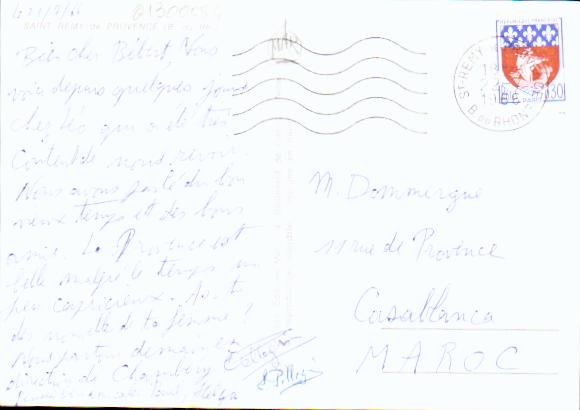 SAINT REMY de PROVENCE
Bien cher Bébert Vous
voir depuis quelques jours
chez Léo qui a été très
content de nous revoir
Nous avons parlé du bon
vieux temps et des bons
amis. La Provence est
belle malgré le temps un
peu capricieux. As-tu
des nouvelle de ta femme ?
Nous partons demain en
direction de Chambéry
REPUBLIQUE FRANÇAISE
0,30
PARIS
ST-REMY
1966
B. DU RHONE
M. Dommergue
11 rue de Provence
Casablanca
MAROC